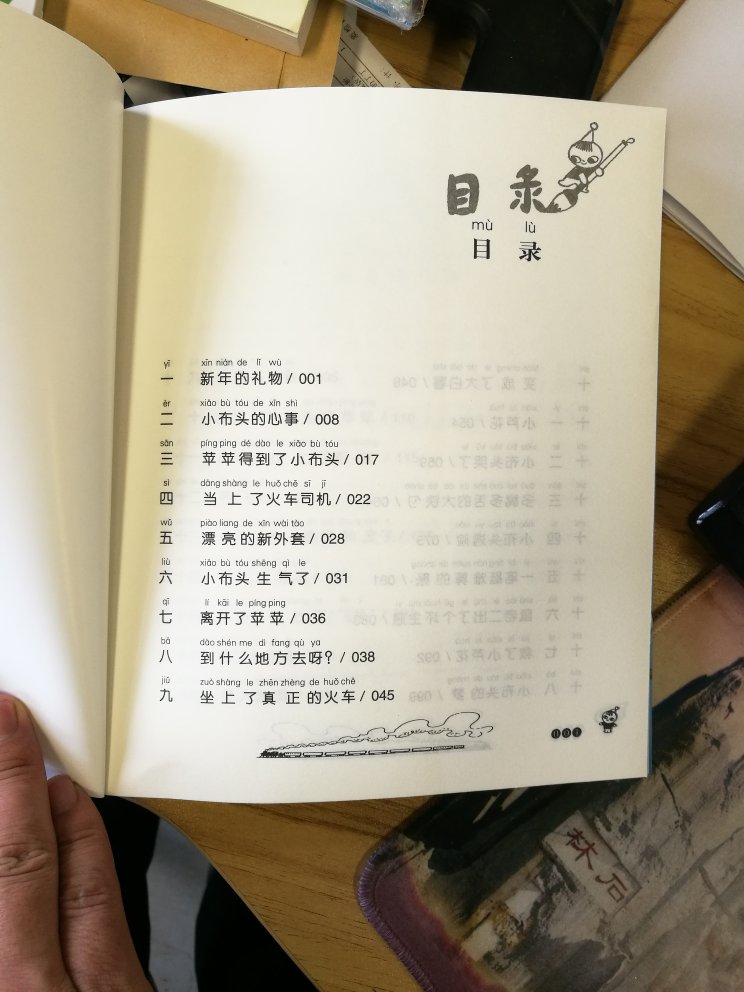 目录
mù lù
目录
yī xīn nián de lǐ wù
一 新年的礼物 / 001
èr xiǎo bù tóu de xīn shì
二 小布头的心事 / 008
sān píng ping dé dào le xiǎo bù tóu
三 苹苹得到了小布头 / 017
sì dāng shàng le huǒ chē sī jī
四 当上了火车司机 / 022
wǔ piào liang de xīn wài tào
五 漂亮的新外套 / 028
liù xiǎo bù tóu shēng qì le
六 小布头生气了 / 031
qī lí kāi le píng ping
七 离开了苹苹 / 036
bā dào shén me dì fang qù ya
八 到什么地方去呀? / 038
jiǔ zuò shàng le zhēn zhèng de huǒ chē
九 坐上了真正的火车 / 045
001
林后